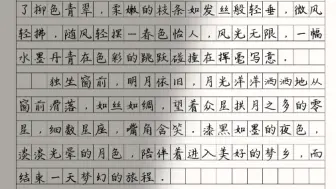 了柳色青翠，柔嫩的枝条如发丝般轻垂，微风
轻拂，随风轻摆一春色怡人，风光无限，一幅
水墨丹青在色彩的跳跃碰撞在挥毫写意。
独坐窗前，明月依旧，月光洋洋洒洒地从
窗前滑落，如丝如绸，望着众星拱月之多的零
星，细数星座，嘴角含笑。漆黑如墨的夜色，
淡淡光晕的月色，陪伴着进入美好的梦乡，而
结束一天梦幻的旅程。